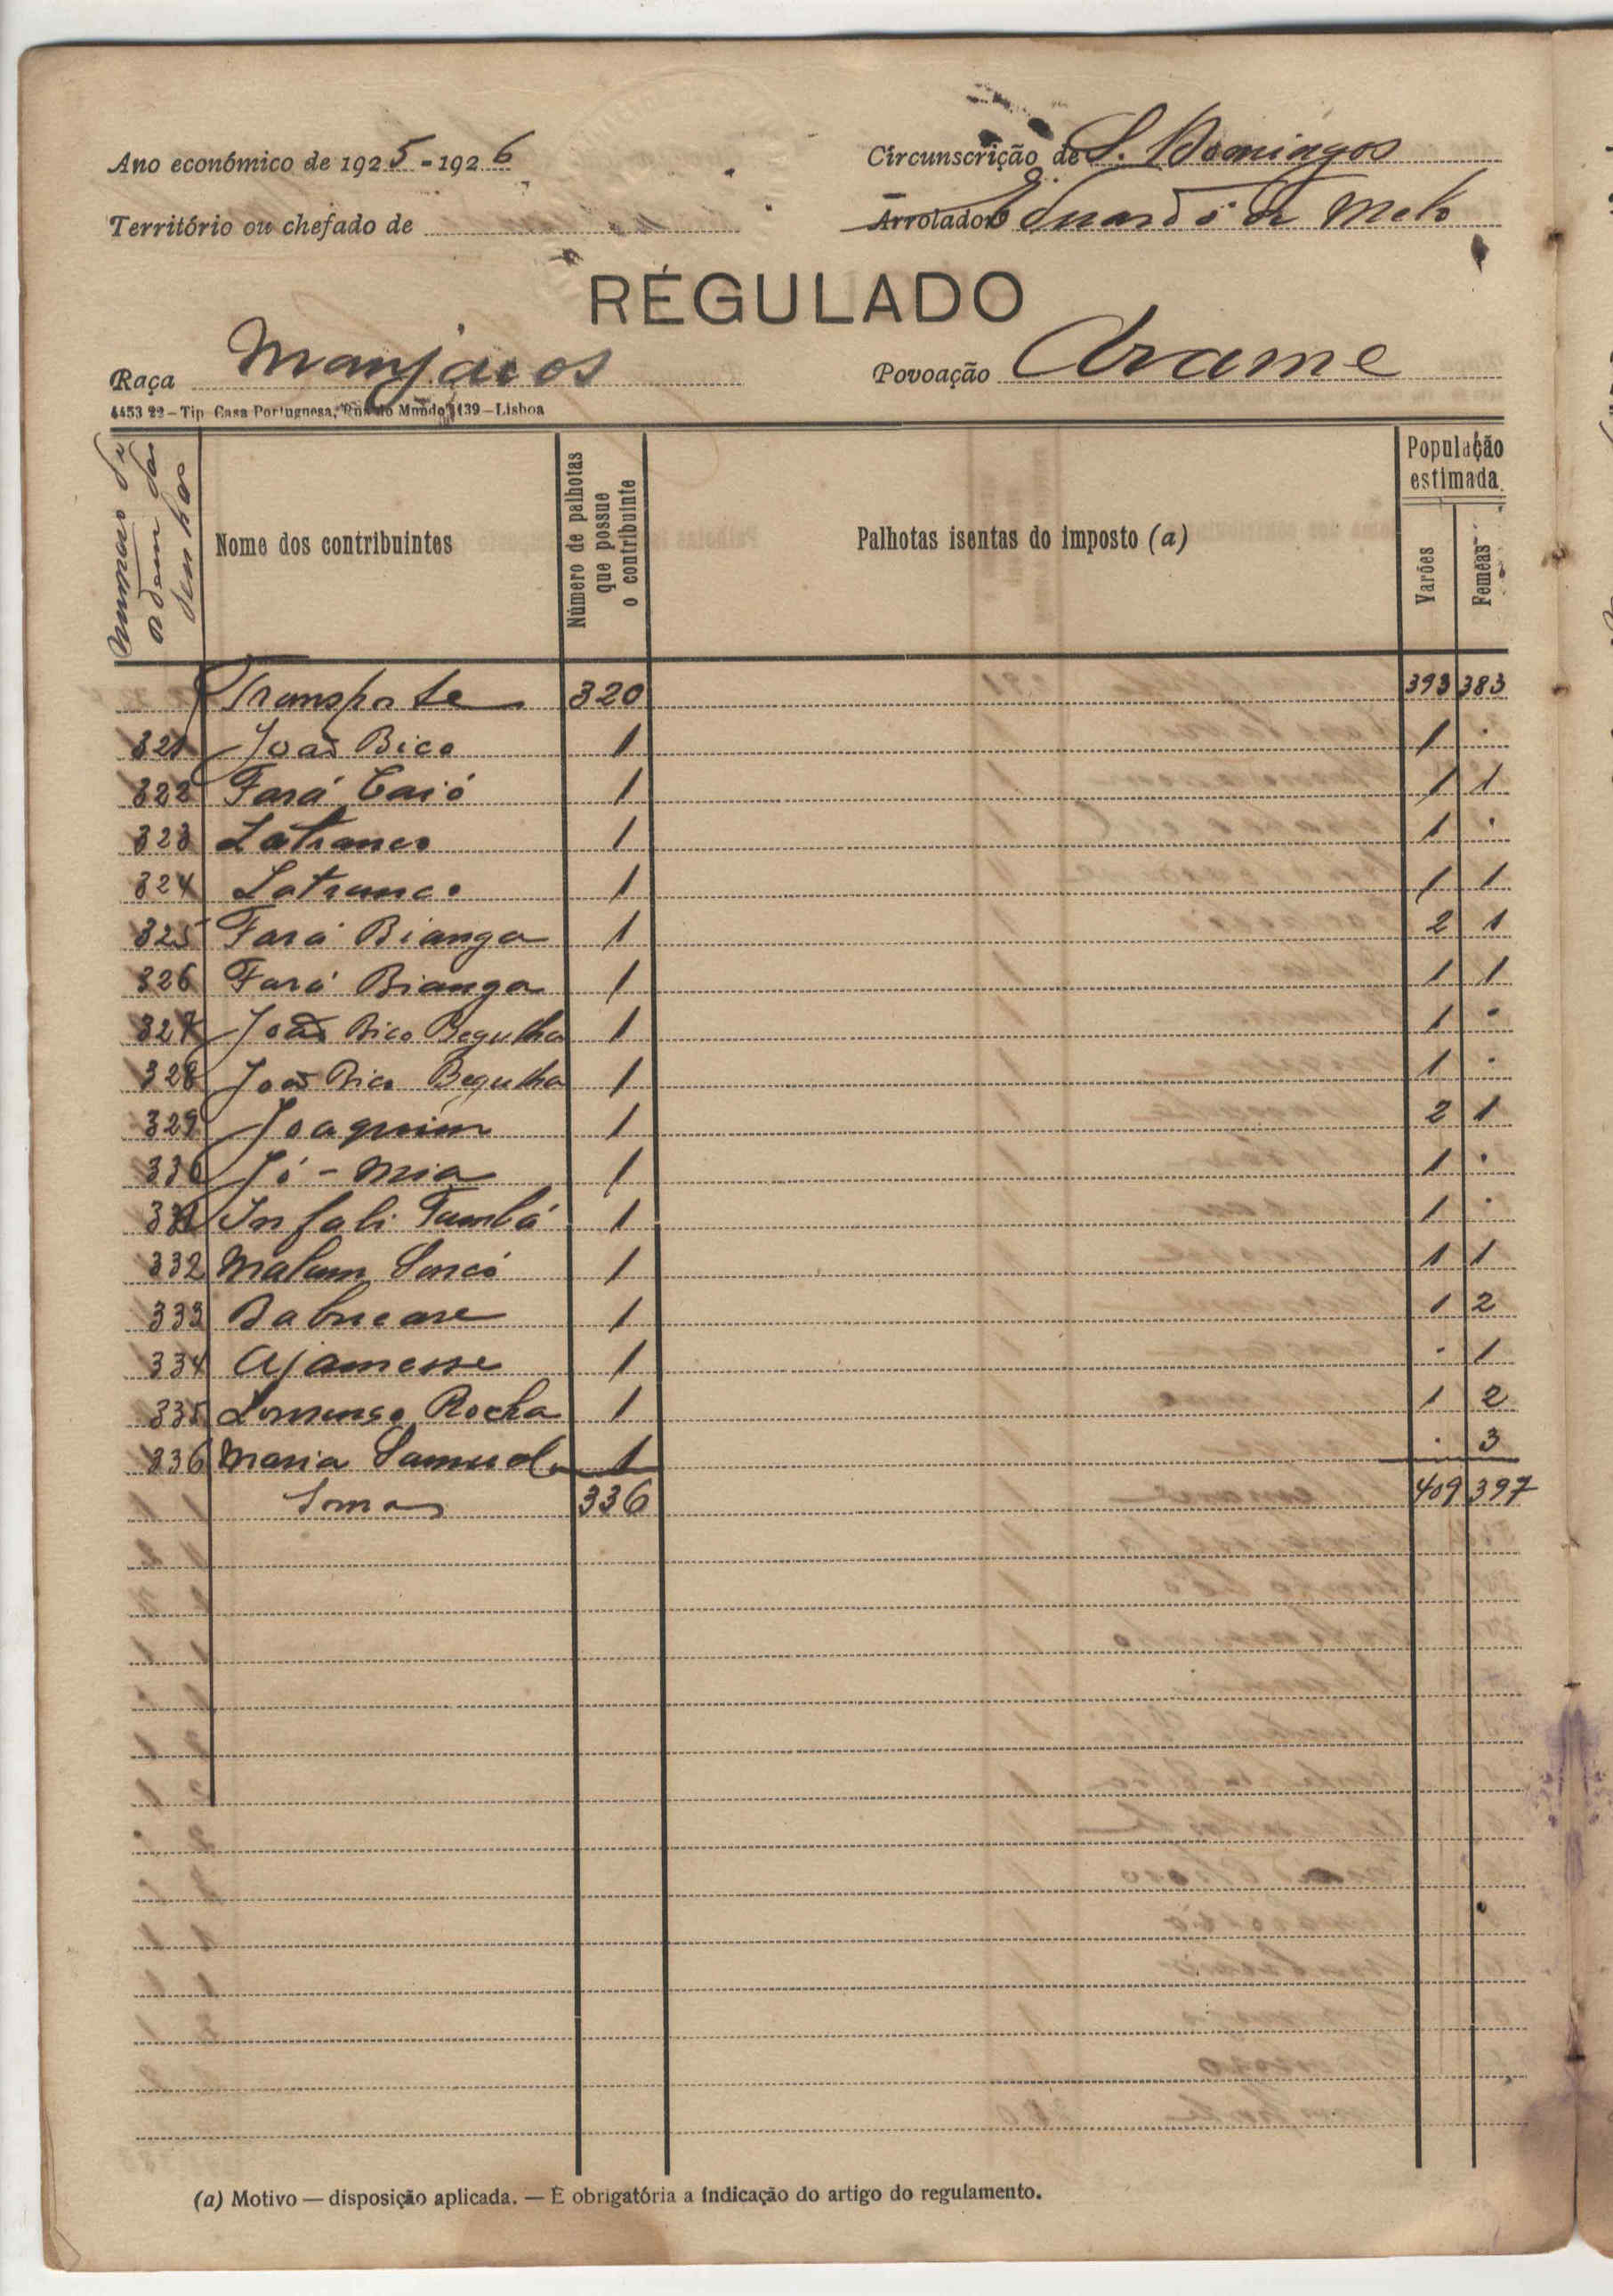 Ano económico de 1925-1926
Circunscrição de S. Domingos
Território ou chefado de
Arrolador Eduardo de Melo
RÉGULADO
Raça Manjacos
Povoação Arame
4453 22 – Tip. Casa Portuguesa, Rua do Mundo, 139 – Lisboa
Numero de ordem das senhas
Nome dos contribuintes
Número de palhotas que possue o contribuinte
Palhotas isentas do imposto (a)
População estimada
Varões
Femeas
Transporte 320 393 383
321 João Bico 1 1 .
322 Fará Caió 1 1 1
323 Latranco 1 1 .
324 Latranco 1 1 1
325 Fará Bianga 1 2 1
326 Fará Bianga 1 1 1
327 João Bico Begulha 1 1 .
328 João Bico Begulha 1 1 .
329 Joaquim 1 2 1
330 Jó - Mia 1 1 .
331 Infali Tambá 1 1 .
332 Malam Sancó 1 1 1
333 Babucare 1 1 2
334 Ajamesse 1 . 1
335 Lourenço Rocha 1 1 2
336 Maria Samuel 1 . 3
Soma 336 409 397
(a) Motivo — disposição aplicada. — É obrigatória a indicação do artigo do regulamento.